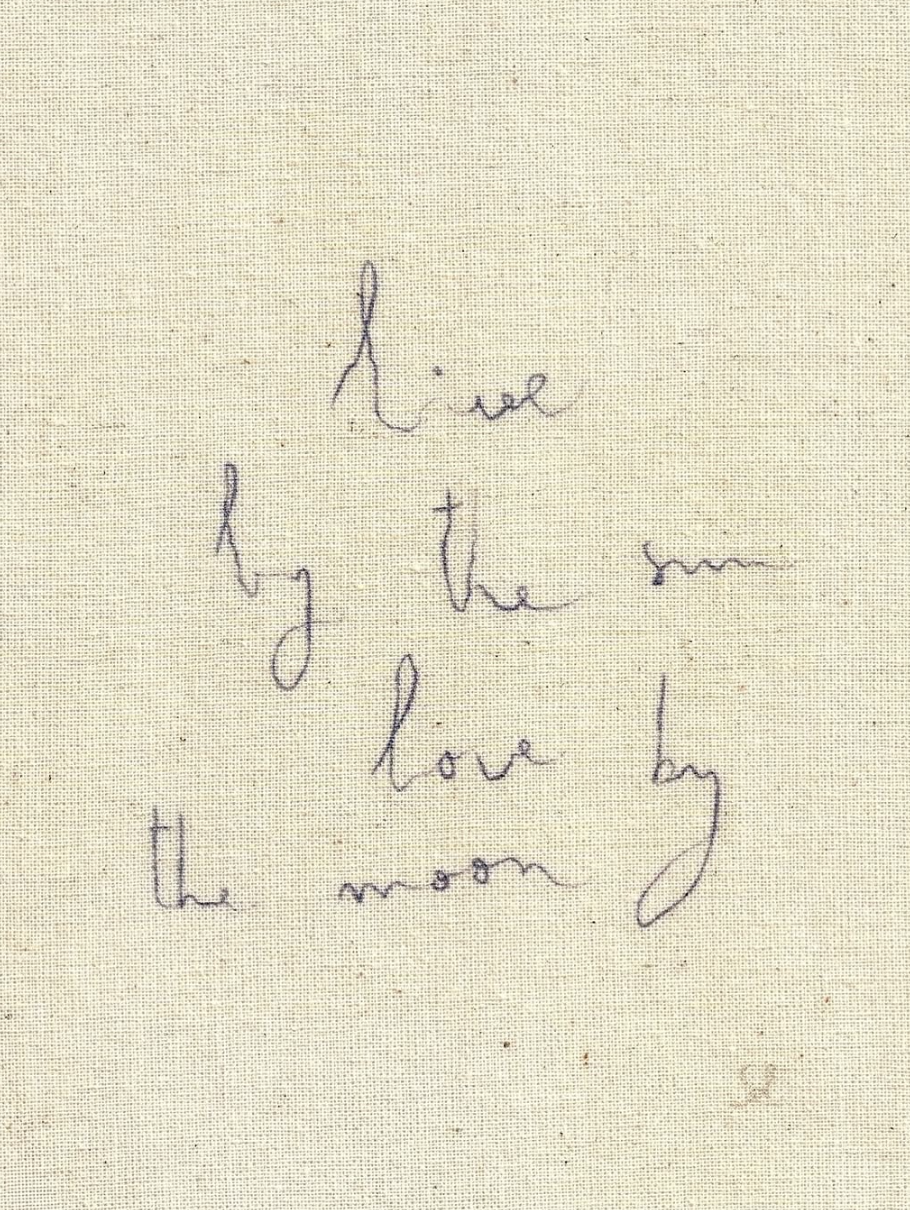 live
by the sun
love by
the moon